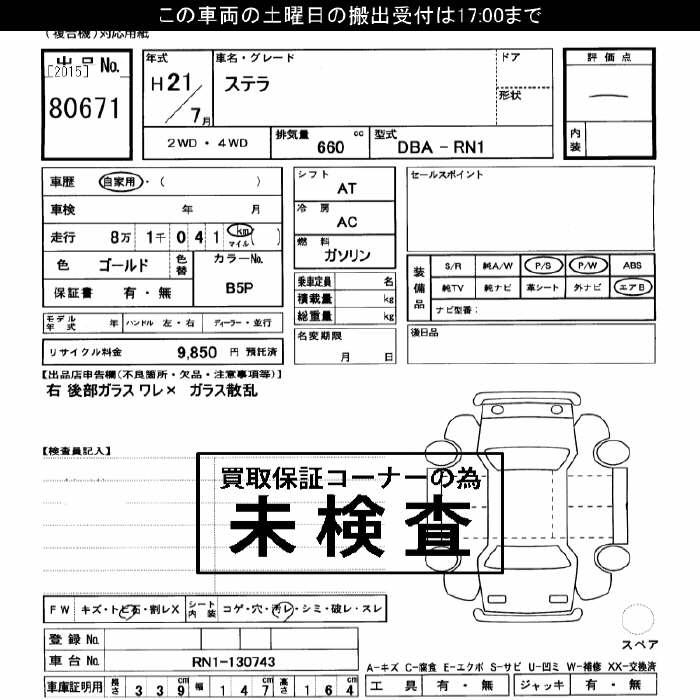 この車両の土曜日の搬出受付は17:00まで
(複合機)対応用紙
出品No. 年式 車名・グレード ドア 評価点
[2015]
80671 H21/7月 ステラ 形状
2WD・4WD 排気量 660 cc 型式 DBA-RN1 内装
車歴 自家用・( ) シフト AT セールスポイント
車検 年 月 冷房 AC
走行 8万 1千 0 4 1 km マイル ( ) 燃料 ガソリン
色 ゴールド 色替 カラーNo. B5P
保証書 有・無
装備品 S/R 純A/W P/S P/W ABS
純TV 純ナビ 革シート 外ナビ エアB
ナビ型番:
乗車定員 名
積載量 kg
総重量 kg
モデル年式 年 ハンドル 左・右 ディーラー・並行 名変期限 月 日 後日品
リサイクル料金 9,850 円 預託済
【出品店申告欄(不良箇所・欠品・注意事項等)】
右 後部ガラス ワレ× ガラス散乱
【検査員記入】
買取保証コーナーの為
未検査
FW キズ・トビ石・割レX シート内装 コゲ・穴・汚レ・シミ・破レ・スレ
登録No.
車台No. RN1-130743
スペア
A-キズ C-腐食 E-エクボ S-サビ U-凹ミ W-補修 XX-交換済
車庫証明用 長さ 3 3 9 cm 幅 1 4 7 cm 高さ 1 6 4 cm 工具 有・無 ジャッキ 有・無